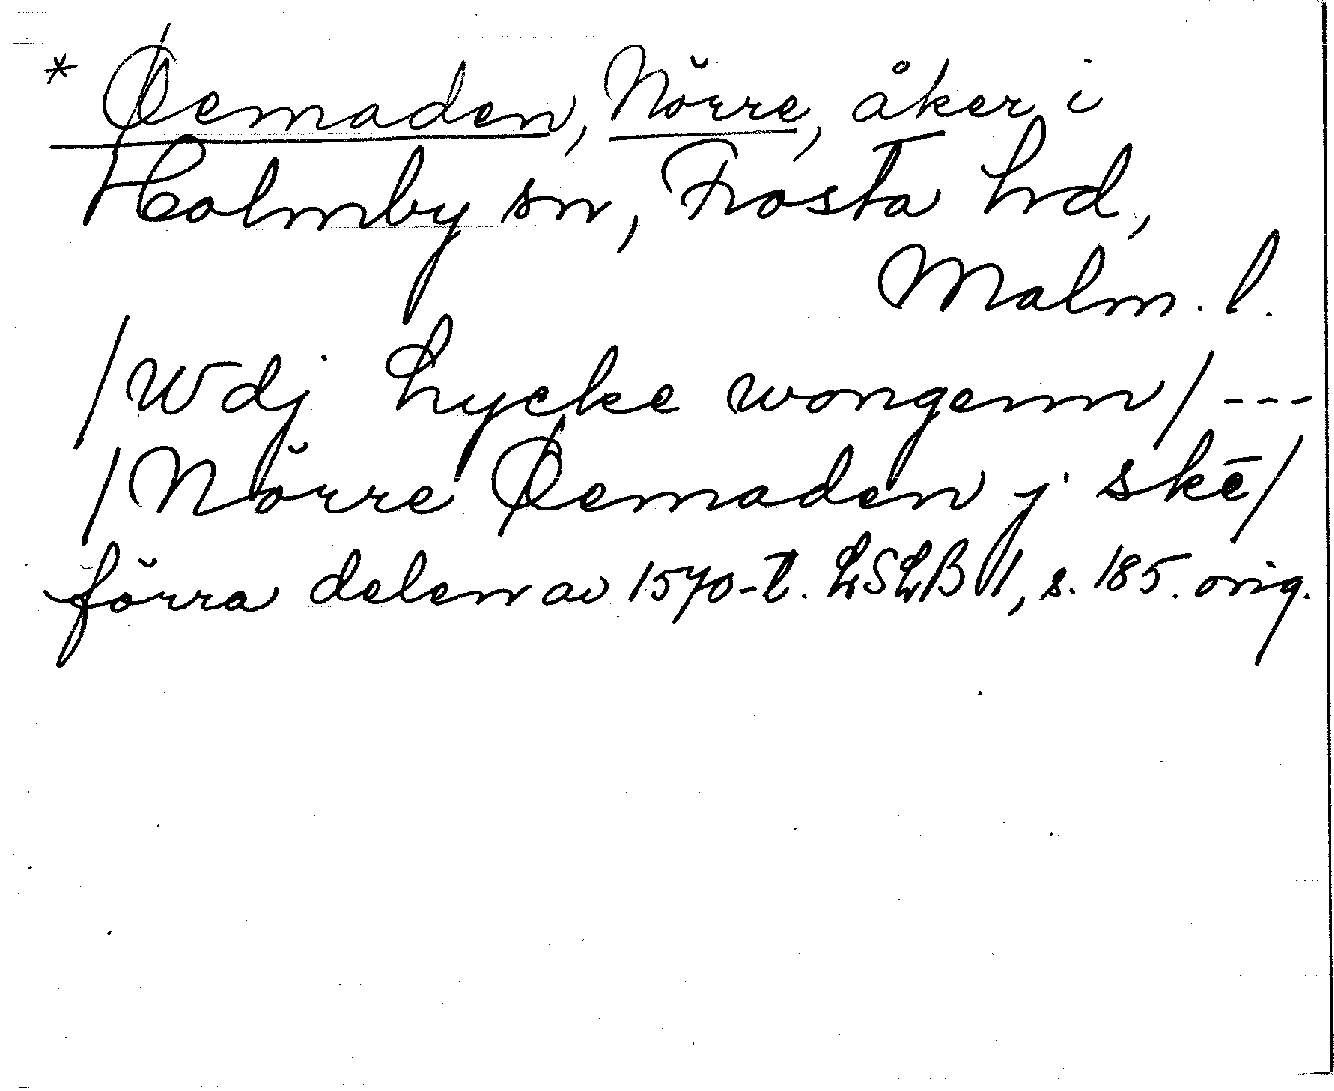 * Øemaden, Nörre, åker i
Holmby sn, Frosta hd,
Malm. l.
/Wdj Lycke wongenn/ ---
/Nörre Øemaden j skē/
förra delen av 1570-t. LSLB II, s. 185. orig.